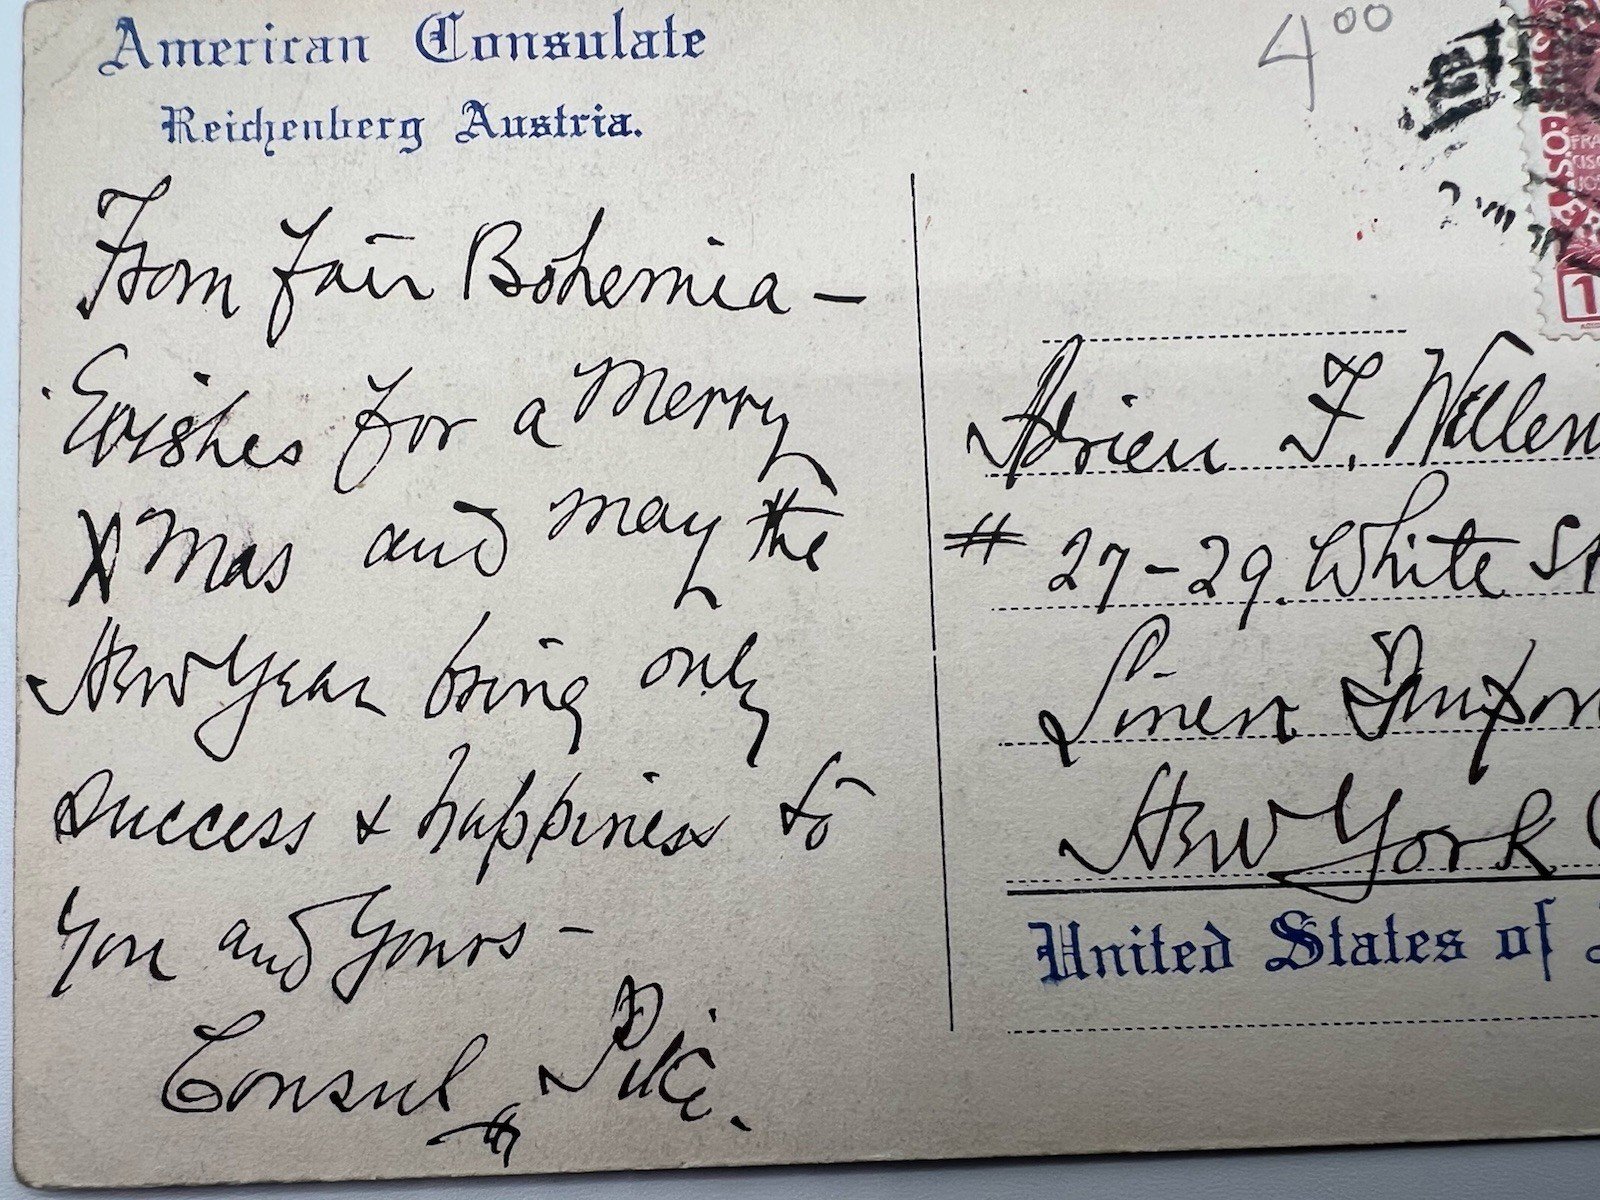 American Consulate
Reichenberg Austria.
4 00
From fair Bohemia –
Wishes for a Merry
XMas and may the
New Year bring only
success & happiness to
you and yours –
Consul Pike.
1
Adrien F. Willem
# 27-29. White St
Linen
New York
United States of